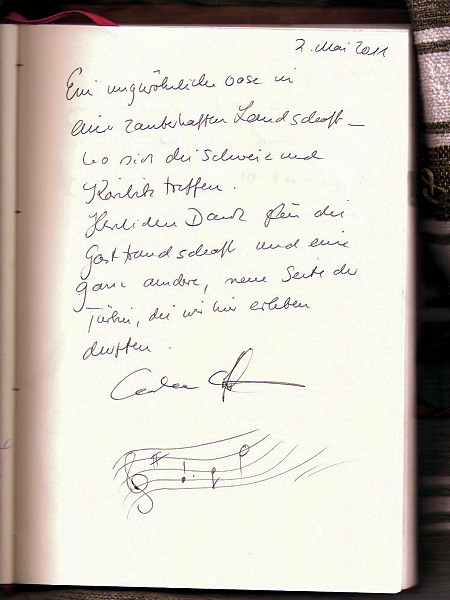 2. Mai 2011
Eine ungwöhnliche Oase in
einer zauberhaften Landschaft –
wo sich die Schweiz und
treffen.
Herzlichen Dank für die
Gastfreundschaft und eine
ganz andere, neue Seite der
Türkei, die wir hier erleben
durften.